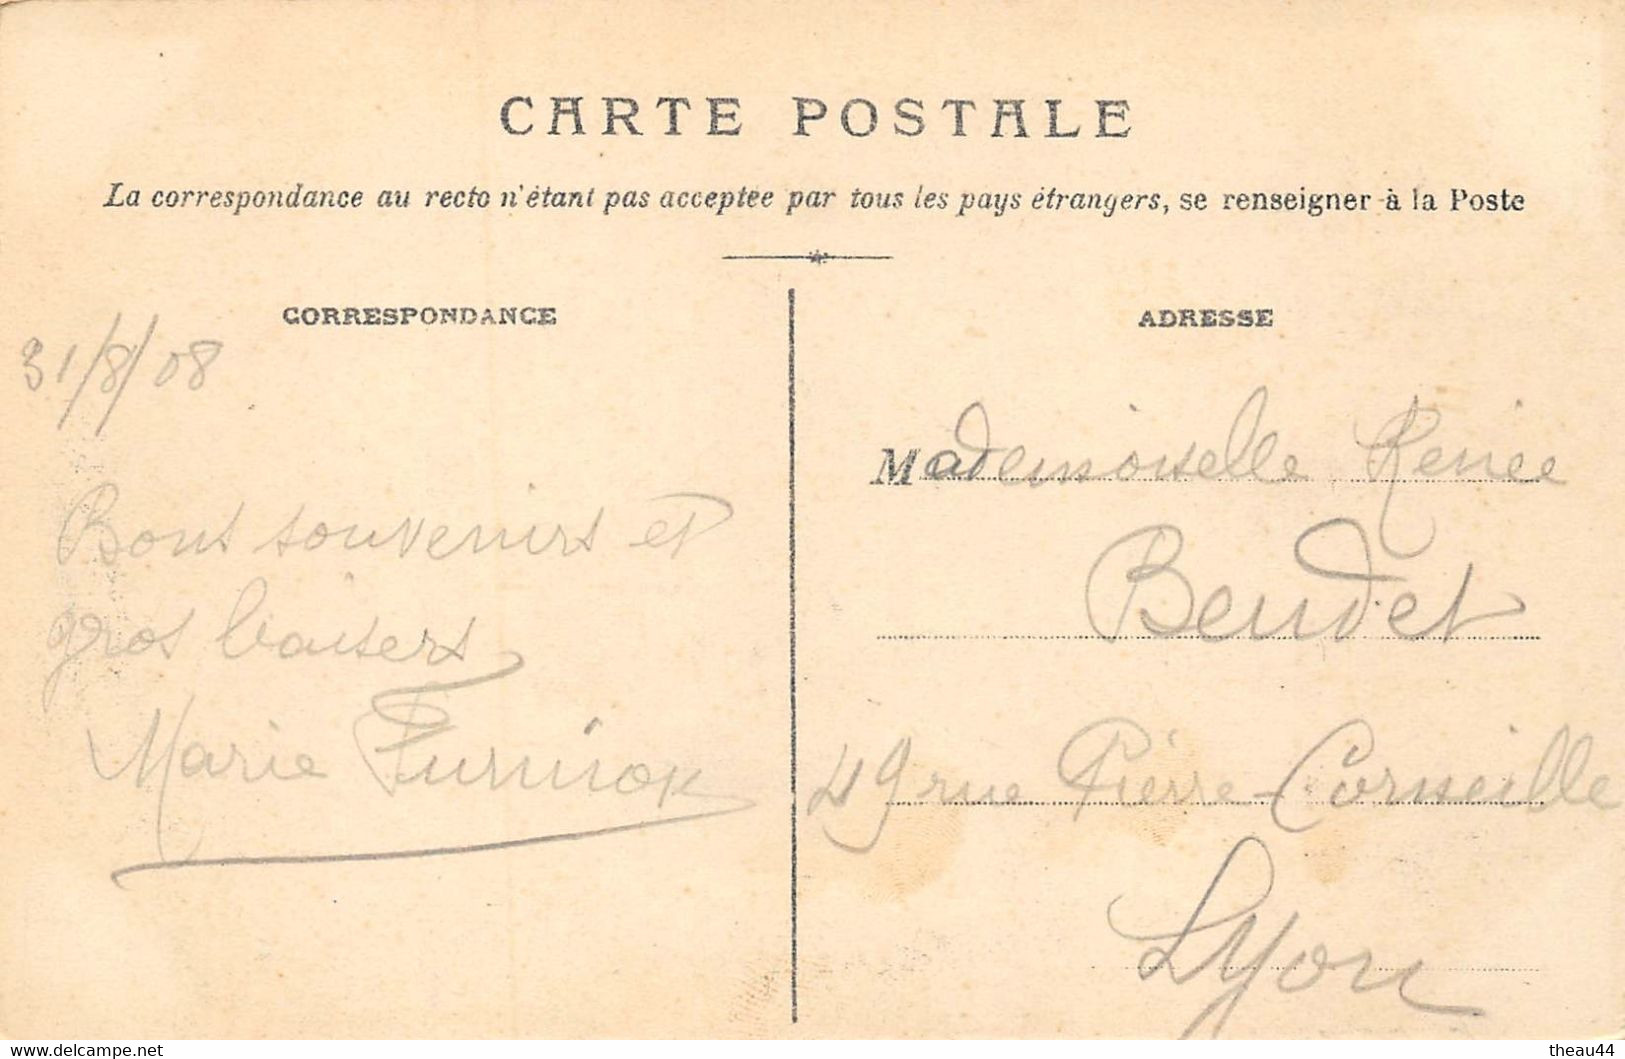 CARTE POSTALE
La correspondance au recto n'étant pas acceptée par tous les pays étrangers, se renseigner à la Poste
CORRESPONDANCE
31/8/08
Bons souvenirs et
gros baisers
Marie
ADRESSE
Mademoiselle Renée
Beudet
49 rue Pierre-Corneille
Lyon
www.delcampe.net
theau44